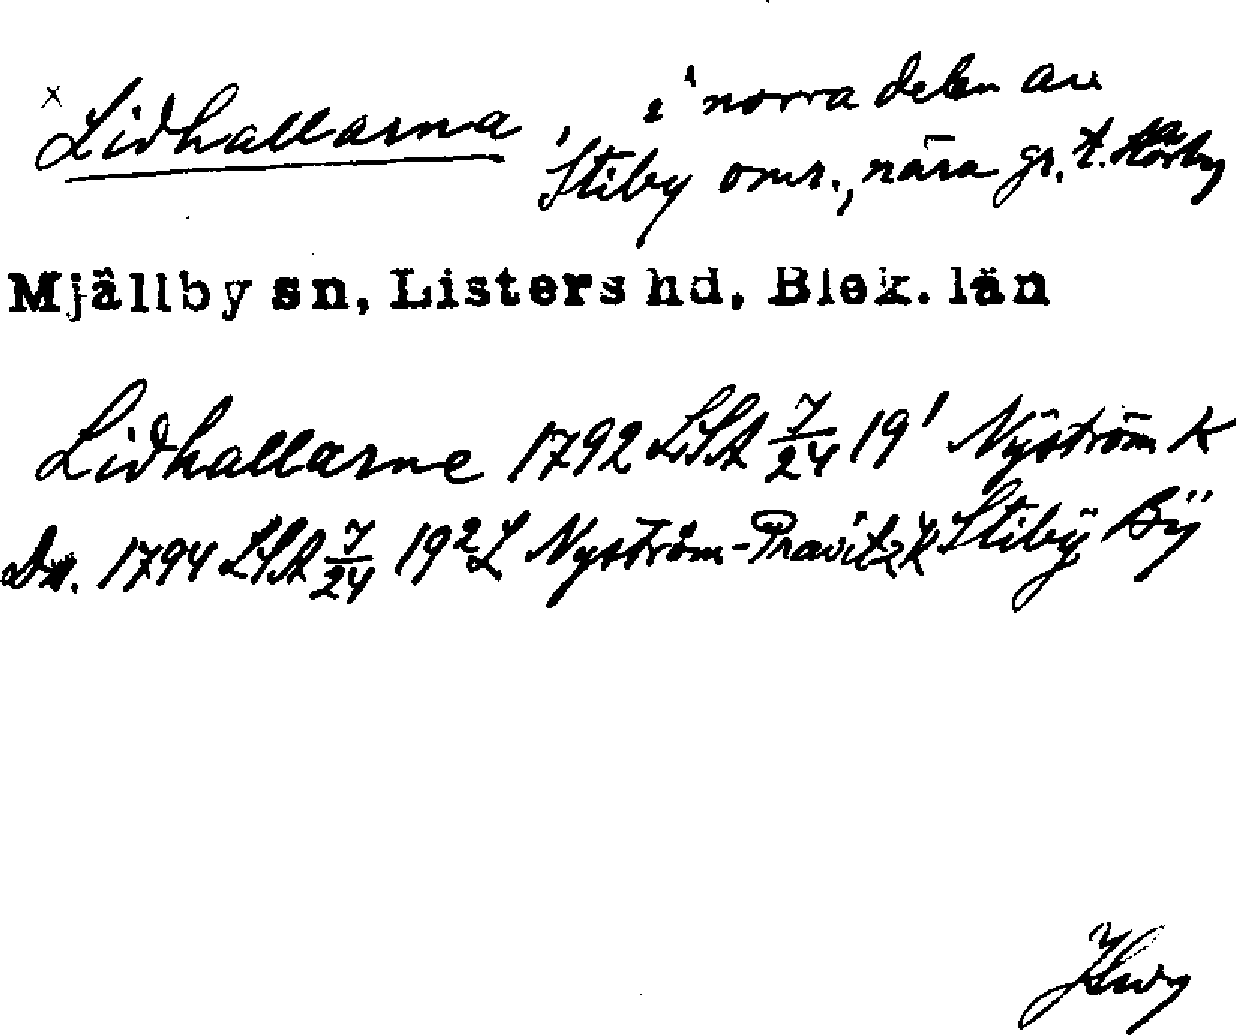 x Lidhallarna, i norra delen av
Stiby omr., nära gr. t.
Mjällby sn, Listers hd, Blek. län
Lidhallarne 1792 LSA 7/24 19¹ Nyström K
Dn. 1794 LSA 7/24 19² L Nyström-Pravitz K Stiby By